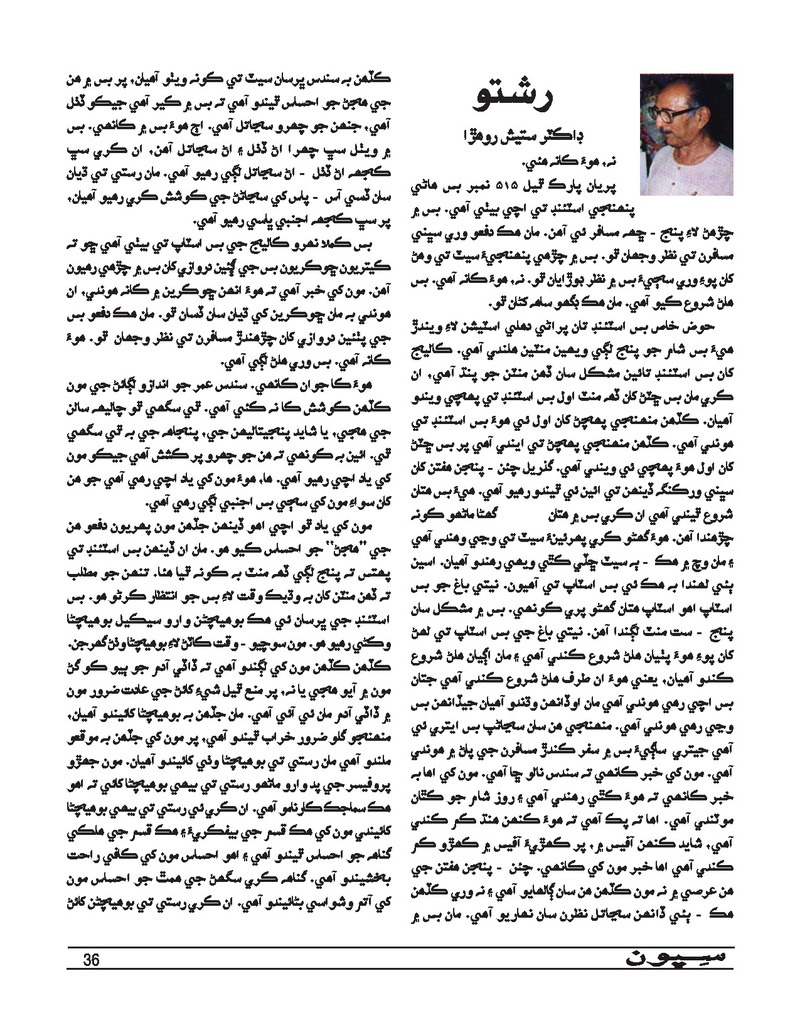 رشتو
ڊاڪٽر ستيش روهڙا
نہ، هوءَ ڪانہ هئي.
پريان پارڪ ٿيل ۵۱۵ نمبر بس هاڻي
پنهنجي اسٽئنڊ تي اچي بيٺي آهي. بس ۾
چڙهڻ لاءِ پنج - ڇهہ مسافر ئي آهن. مان هڪ دفعو وري سڀني
مسافرن تي نظر وجهان ٿو. بس ۾ چڙهي پنهنجيءَ سيٽ تي وهڻ
کان پوءِ وري سڄيءَ بس ۾ نظر ڊوڙايان ٿو. نہ، هوءَ ڪانہ آهي. بس
هلڻ شروع ڪيو آهي. مان هڪ ڊگهو ساهہ کڻان ٿو.
حوض خاص بس اسٽئنڊ تان پراڻي دهلي اسٽيشن لاءِ ويندڙ
هيءَ بس شام جو پنج لڳي ويهين منٽين هلندي آهي. ڪاليج
کان بس اسٽئنڊ تائين مشڪل سان ڏهن منٽن جو پنڌ آهي، ان
ڪري مان بس ڇٽڻ کان ڏهہ منٽ اول بس اسٽئنڊ تي پهچي ويندو
آهيان. ڪڏهن منهنجي پهچڻ کان اول ئي هوءَ بس اسٽئنڊ تي
هوندي آهي. ڪڏهن منهنجي پهچڻ تي ايندي آهي پر بس ڇٽڻ
کان اول هوءَ پهچي ئي ويندي آهي. گذريل چئن - پنجن هفتن کان
سڀني ورڪنگہ ڏينهن تي ائين ئي ٿيندو رهيو آهي. هيءَ بس هتان
شروع ٿيندي آهي ان ڪري بس ۾ هتان گهڻا ماڻهو ڪونہ
چڙهندا آهن. هوءَ گهڻو ڪري پهرئينءَ سيٽ تي وڃي وهندي آهي
۽ مان وچ ۾ هڪ - ٻہ سيٽ ڇڏي ڪٿي ويهي رهندو آهيان. اسين
ٻئي لهندا بہ هڪ ئي بس اسٽاپ تي آهيون. نيتي باغ جو بس
اسٽاپ اهو اسٽاپ هتان گهڻو پري ڪونهي. بس ۾ مشڪل سان
پنج - ست منٽ لڳندا آهن. نيتي باغ جي بس اسٽاپ تي لهڻ
کان پوءِ هوءَ پٺيان هلڻ شروع ڪندي آهي ۽ مان اڳيان هلڻ شروع
ڪندو آهيان، يعني هوءَ ان طرف هلڻ شروع ڪندي آهي جتان
بس اچي رهي هوندي آهي مان اوڏانهن وڌندو آهيان جيڏانهن بس
وڃي رهي هوندي آهي. منهنجي هن سان سڃاڻپ بس ايتري ئي
آهي جيتري ساڳيءَ بس ۾ سفر ڪندڙ مسافرن جي پاڻ ۾ هوندي
آهي. مون کي خبر ڪانهي تہ سندس نالو ڇا آهي. مون کي اها بہ
خبر ڪانهي تہ هوءَ ڪٿي رهندي آهي ۽ روز شام جو ڪٿان
موٽندي آهي. اها تہ پڪ آهي تہ هوءَ ڪنهن هنڌ ڪم ڪندي
آهي، شايد ڪنهن آفيس ۾، پر ڪهڙيءَ آفيس ۾ ڪهڙو ڪم
ڪندي آهي اها خبر مون کي ڪانهي. چئن - پنجن هفتن جي
هن عرصي ۾ نہ مون ڪڏهن هن سان ڳالهايو آهي ۽ نہ وري ڪڏهن
هڪ - ٻئي ڏانهن سڃاتل نظرن سان نهاريو آهي. مان بس ۾
ڪڏهن بہ سندس ڀرسان سيٽ تي ڪونہ ويٺو آهيان، پر بس ۾ هن
جي هجڻ جو احساس ٿيندو آهي تہ بس ۾ ڪير آهي جيڪو ڏٺل
آهي، جنهن جو چهرو سڃاتل آهي. اڄ هوءَ بس ۾ ڪانهي. بس
۾ ويٺل سڀ چهرا اڻ ڏٺل ۽ اڻ سڃاتل آهن، ان ڪري سڀ
ڪجهہ اڻ ڏٺل - اڻ سڃاتل لڳي رهيو آهي. مان رستي تي ڌيان
سان ڏسي آس - پاس کي سڃاڻڻ جي ڪوشش ڪري رهيو آهيان،
پر سڀ ڪجهہ اجنبي ڀاسي رهيو آهي.
بس ڪملا نهرو ڪاليج جي بس اسٽاپ تي بيٺي آهي ڇو تہ
ڪيتريون ڇوڪريون بس جي ڳئين دروازي کان بس ۾ چڙهي رهيون
آهن. مون کي خبر آهي تہ هوءَ انهن ڇوڪرين ۾ ڪانہ هوندي، ان
هوندي بہ مان ڇوڪرين کي ڌيان سان ڏسان ٿو. مان هڪ دفعو بس
جي پٺئين دروازي کان چڙهندڙ مسافرن تي نظر وجهان ٿو. هوءَ
ڪانہ آهي. بس وري هلڻ لڳي آهي.
هوءَ ڪا جوان ڪانهي. سندس عمر جو اندازو لڳائڻ جي مون
ڪڏهن ڪوشش ڪا نہ ڪئي آهي. ٿي سگهي ٿو چاليهہ سالن
جي هجي، يا شايد پنجيتاليهن جي، پنجاهہ جي بہ ٿي سگهي
ٿي. ائين بہ ڪونهي تہ هن جو چهرو پرڪشش آهي جيڪو مون
کي ياد اچي رهيو آهي. ها، هوءَ مون کي ياد اچي رهي آهي جو هن
کان سواءِ مون کي سڄي بس اجنبي لڳي رهي آهي.
مون کي ياد ٿو اچي اهو ڏينهن جڏهن مون پهريون دفعو هن
جي ”هجڻ“ جو احساس ڪيو هو. مان ان ڏينهن بس اسٽئنڊ تي
پهتس تہ پنج لڳي ڏهہ منٽ بہ ڪونہ ٿيا هئا. تنهن جو مطلب
تہ ڏهن منٽن کان بہ وڌيڪ وقت لاءِ بس جو انتظار ڪرڻو هو. بس
اسٽئنڊ جي ڀرسان ئي هڪ بوهيمڃڻن وارو سيڪيل بوهيمڃڻا
وڪڻي رهيو هو. مون سوچيو - وقت ڪاٽڻ لاءِ بوهيمڃڻا وٺڻ گهرجن.
ڪڏهن ڪڏهن مون کي لڳندو آهي تہ ڏاڏي آدم جو ٻيو ڪو گڻ
مون ۾ آيو هجي يا نہ، پر منع ٿيل شيءِ کائڻ جي عادت ضرور مون
۾ ڏاڏي آدم مان ئي آئي آهي. مان جڏهن بہ بوهيمڃڻا کائيندو آهيان،
منهنجو گلو ضرور خراب ٿيندو آهي، پر مون کي جڏهن بہ موقعو
ملندو آهي مان رستي تي بوهيمڃڻا وٺي کائيندو آهيان. مون جهڙو
پروفيسر جي پد وارو ماڻهو رستي تي بيهي بوهيمڃڻا کائي تہ اهو
هڪ سماجڪ ڪارنامو آهي. ان ڪري ئي رستي تي بيهي بوهيمڃڻا
کائيندي مون کي هڪ قسم جي بيفڪريءَ ۽ هڪ قسم جي هلڪي
گناهہ جو احساس ٿيندو آهي ۽ اهو احساس مون کي ڪافي راحت
بخشيندو آهي. گناهہ ڪري سگهڻ جي همت جو احساس مون
کي آتم وشواسي بڻائيندو آهي. ان ڪري رستي تي بوهيمڃڻن کائڻ
36
سِپون